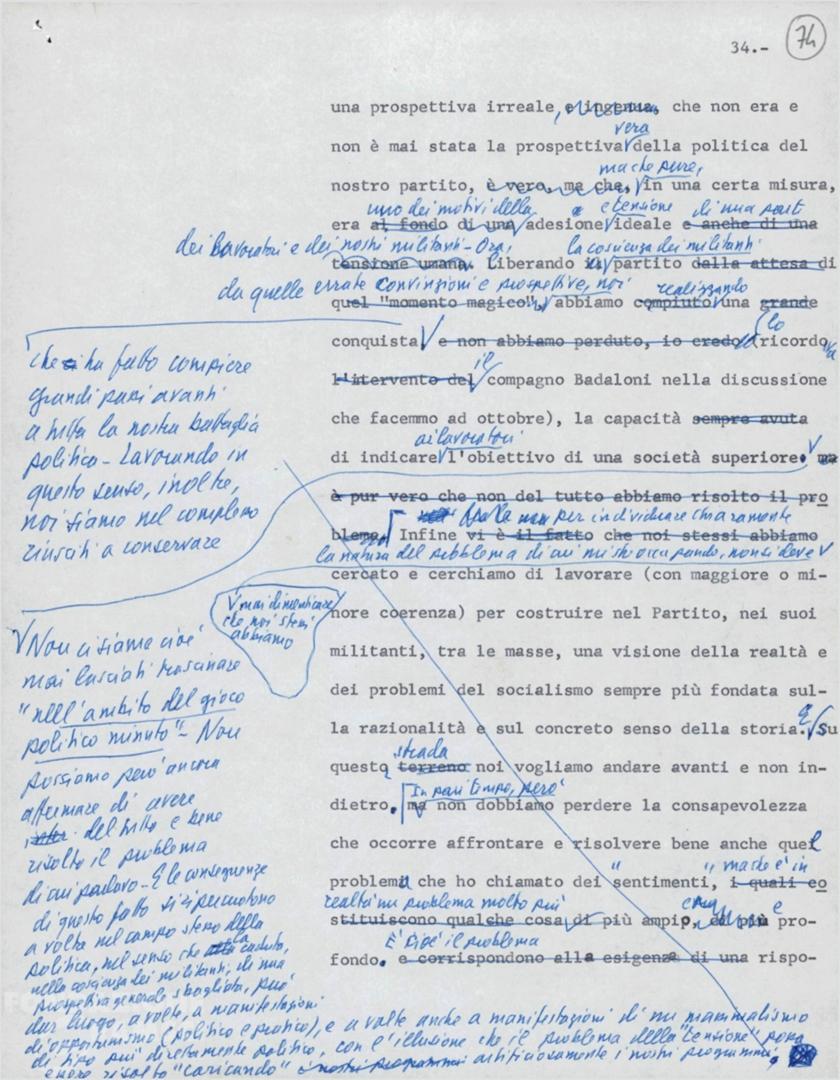 34.-
74
una prospettiva irreale, e ingenua, che non era e
vera
non è mai stata la prospettiva della politica del
ma che pure,
nostro partito, è vero, ma che, in una certa misura,
uno dei motivi della e tensione di una parte
era al fondo di una adesione ideale e anche di una
dei lavoratori e dei nostri militanti - Ora, la coscienza dei militanti
tensione umana. Liberando il partito dalla attesa di
da quelle errate convinzioni e prospettive, noi realizzando
quel "momento magico", abbiamo compiuto una grande
lo
conquista e non abbiamo perduto, io credo (ricordava
il
l'intervento del compagno Badaloni nella discussione
che facemmo ad ottobre), la capacità sempre avuta
ai lavoratori
di indicare l'obiettivo di una società superiore. ma
è pur vero che non del tutto abbiamo risolto il pro
per individuare chiaramente
blema. Infine vi è il fatto che noi stessi abbiamo
la natura del problema di cui mi sto occupando, non si deve
cercato e cerchiamo di lavorare (con maggiore o mi-
nore coerenza) per costruire nel Partito, nei suoi
militanti, tra le masse, una visione della realtà e
dei problemi del socialismo sempre più fondata sul-
la razionalità e sul concreto senso della storia. E Su
strada
questo terreno noi vogliamo andare avanti e non in-
In pari tempo, però
dietro. ma non dobbiamo perdere la consapevolezza
che occorre affrontare e risolvere bene anche quel
" ma che è in
problema che ho chiamato dei "sentimenti, i quali co
realtà un problema molto più
stituiscono qualche cosa di più ampio, ed più e pro-
È cioè il problema
fondo. e corrispondono alla esigenza di una rispo-
che ci ha fatto compiere
grandi passi avanti
a tutta la nostra battaglia
politica - Lavorando in
questo senso, inoltre,
noi siamo nel complesso
riusciti a conservare
mai dimenticare
che noi stessi
abbiamo
Non ci siamo cioè
mai lasciati trascinare
"nell'ambito del gioco
politico minuto" - Non
possiamo però ancora
affermare di avere
del tutto e bene
risolto il problema
di cui parlavo - E le conseguenze
di questo fatto si ripercuotono
a volte nel campo stesso della
politica, nel senso che la caduta,
nella coscienza dei militanti, di una
prospettiva generale sbagliata, può
dar luogo, a volte, a manifestazioni
di opportunismo (politico e pratico), e a volte anche a manifestazioni di un massimalismo
di tipo più direttamente politico, con l'illusione che il problema della "tensione" possa
essere risolto "caricando" i nostri programmi artificiosamente i nostri programmi.